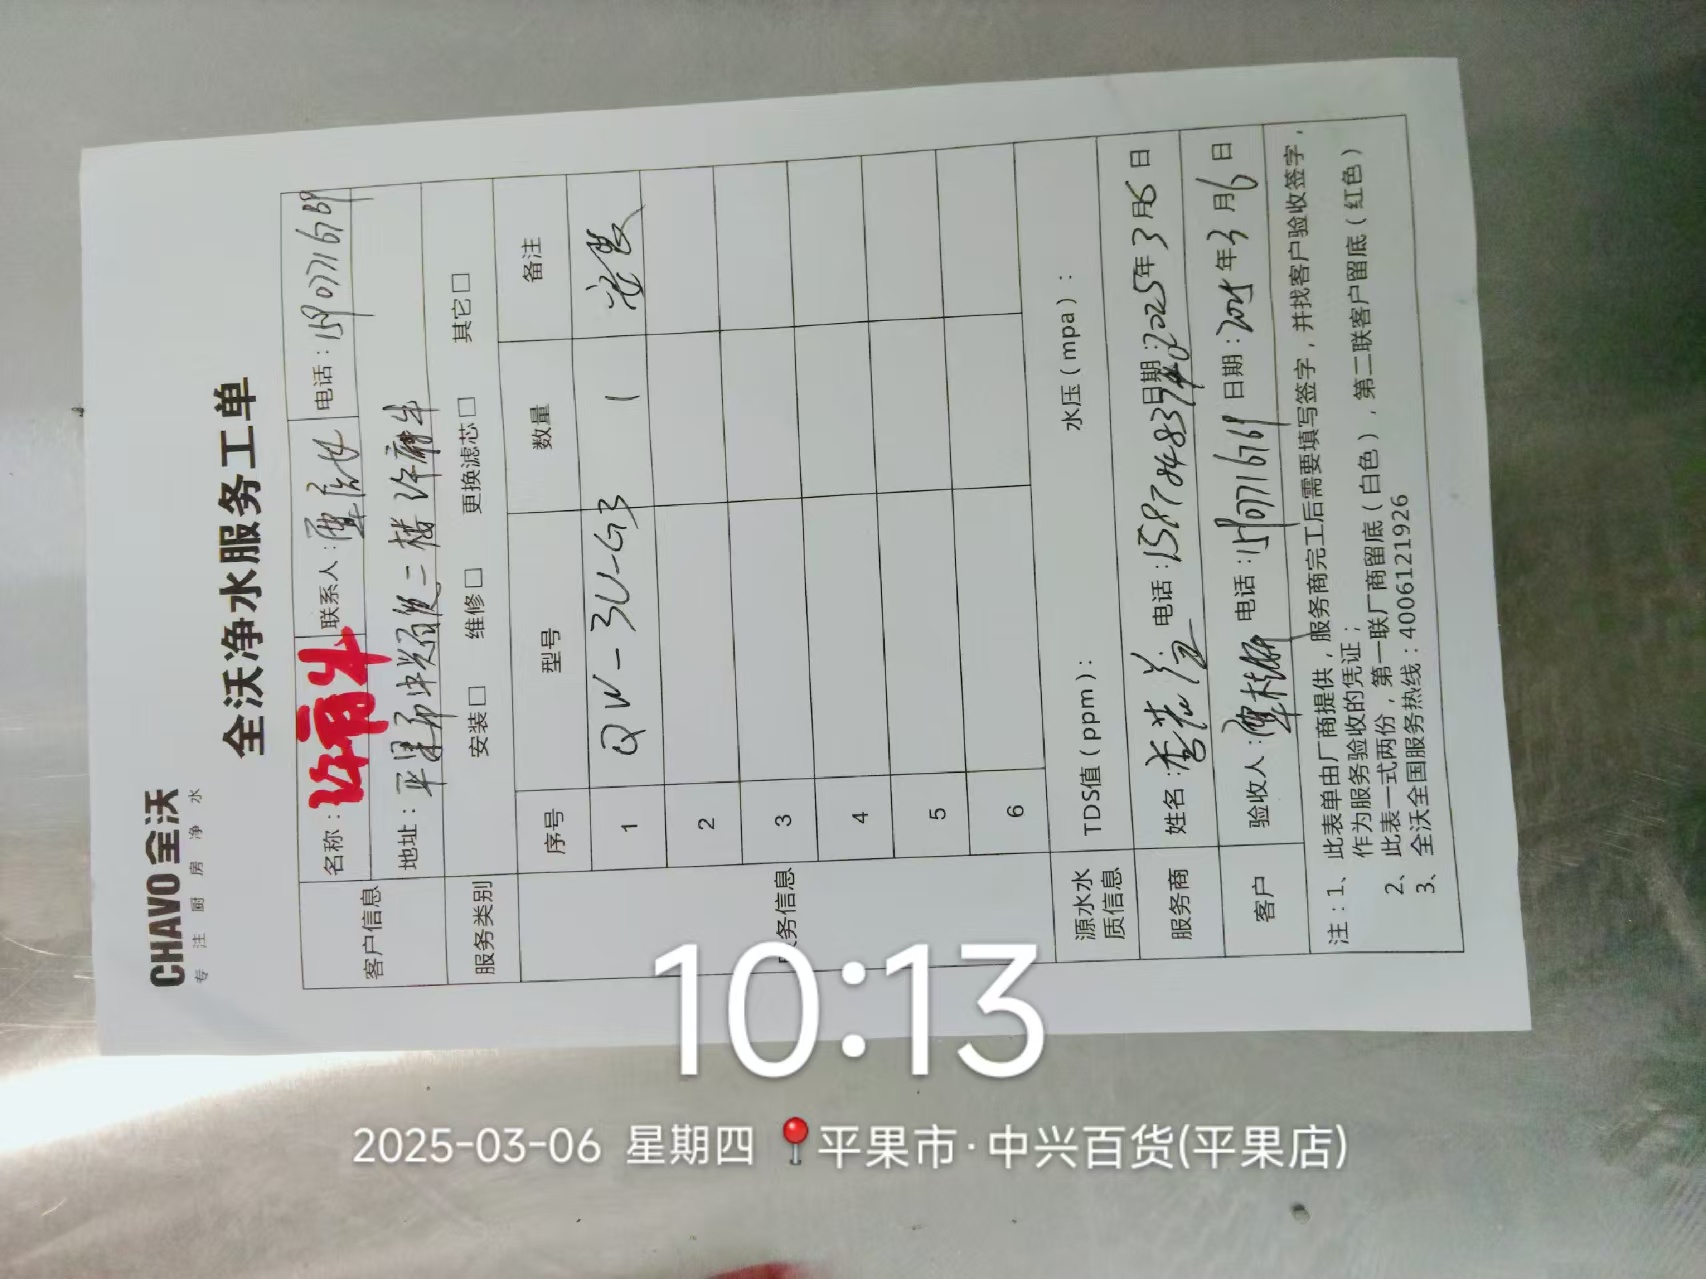 CHAVO 全沃
专注厨房净水
全沃净水服务工单
客户信息 名称：许府牛 联系人：覃 电话：
地址：平果市中兴百货二楼许府牛
服务类别 安装□ 维修□ 更换滤芯□ 其它□
服务信息 序号 型号 数量 备注
1 QW-3U-G3 1 安装
2
3
4
5
6
源水水质信息 TDS值（ppm）： 水压（mpa）：
服务商 姓名： 电话：15878483940 日期：2025年3月6日
客户 验收人：覃 电话： 日期：2025年3月6日
注：1、此表单由厂商提供，服务商完工后需要填写签字，并找客户验收签字，
作为服务验收的凭证；
2、此表一式两份，第一联厂商留底（白色），第二联客户留底（红色）
3、全沃全国服务热线：4006121926
10:13
2025-03-06 星期四 平果市·中兴百货(平果店)